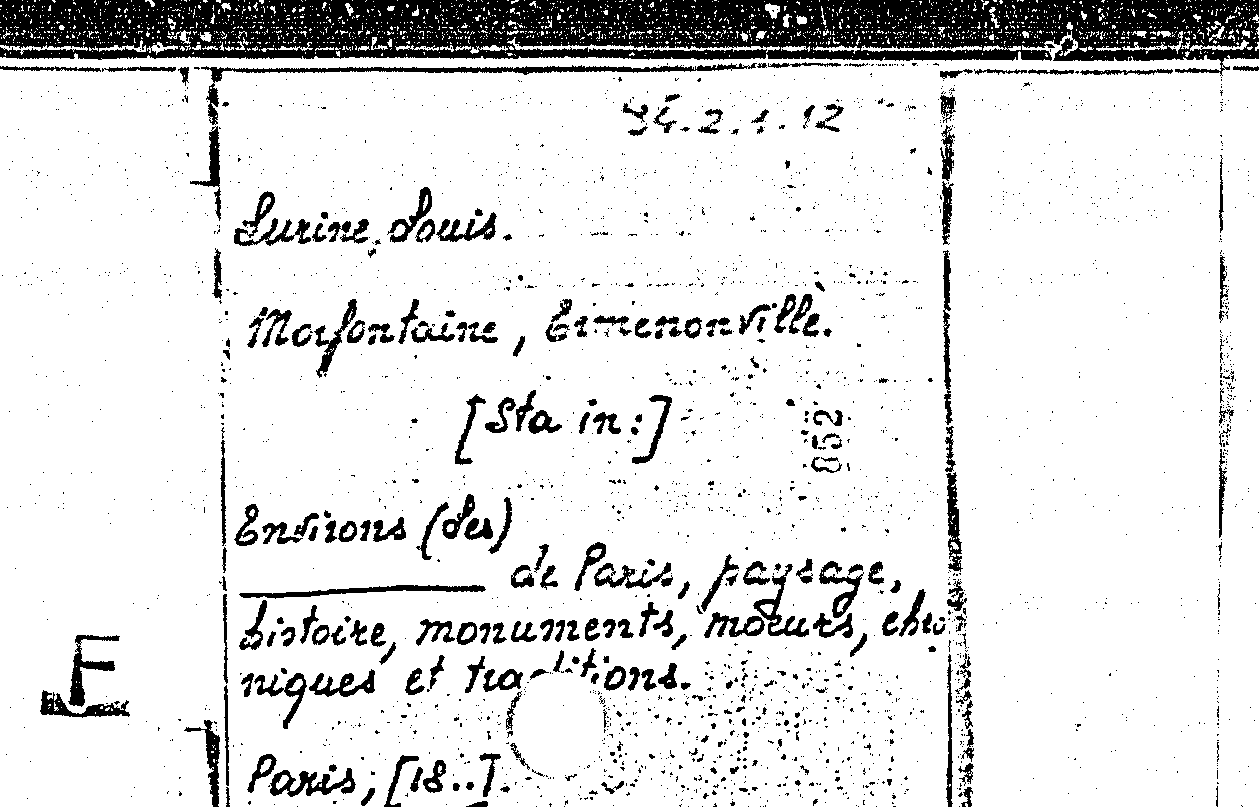 94.2.1.12
Lurine, Louis.
Morfontaine, Ermenonville.
[Sta in:]
852
Environs (des)
de Paris, paysage,
histoire, monuments, moeurs, chro
niques et traditions.
E
Paris, [18..].